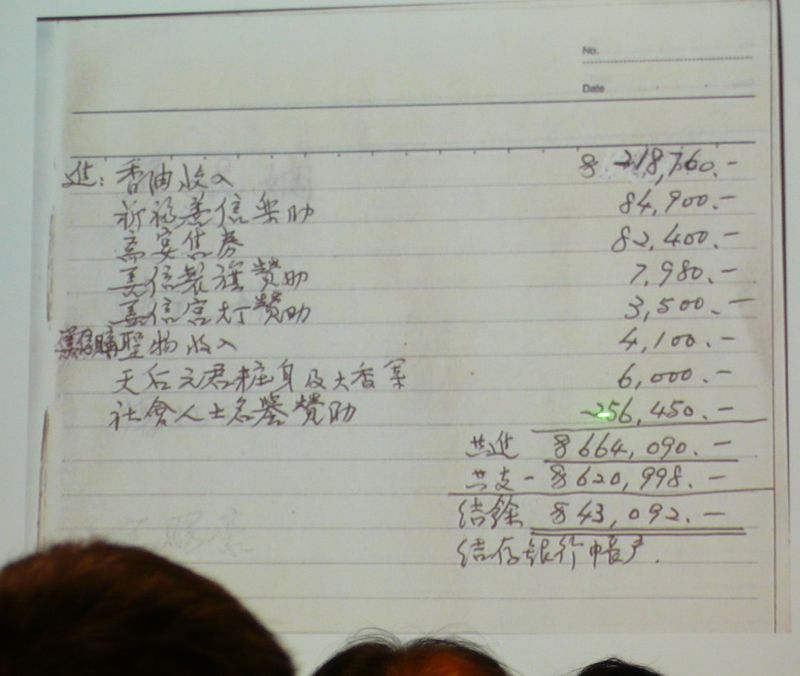 No.
Date
進：香油收入 $ 218,760.-
祈福善信樂助 84,900.-
齋宴售券 82,400.-
善信製旗贊助 7,980.-
善信宮灯贊助 3,500.-
善信購聖物收入 4,100.-
天后元君粧身及大香案 6,000.-
社會人士名鑒贊助 256,450.-
共進 $664,090.-
共支 - $620,998.-
結餘 $43,092.-
結存銀行帳户.